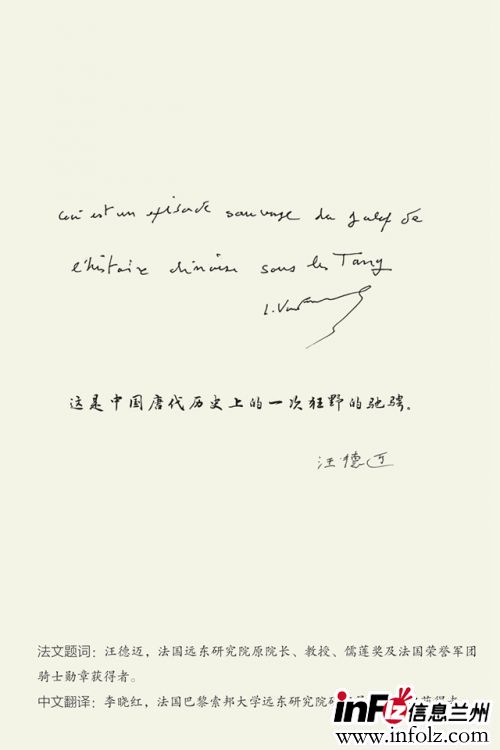 Ceci est un épisode sauvage du galop de
l'histoire chinoise sous les Tang
L. Van
这是中国唐代历史上的一次狂野的驰骋。
汪德迈
法文题词：汪德迈，法国远东研究院原院长、教授、儒莲奖及法国荣誉军团
骑士勋章获得者。
中文翻译：李晓红，法国巴黎索邦大学远东研究院研
获得者
inFlz信息兰州
www.infolz.com